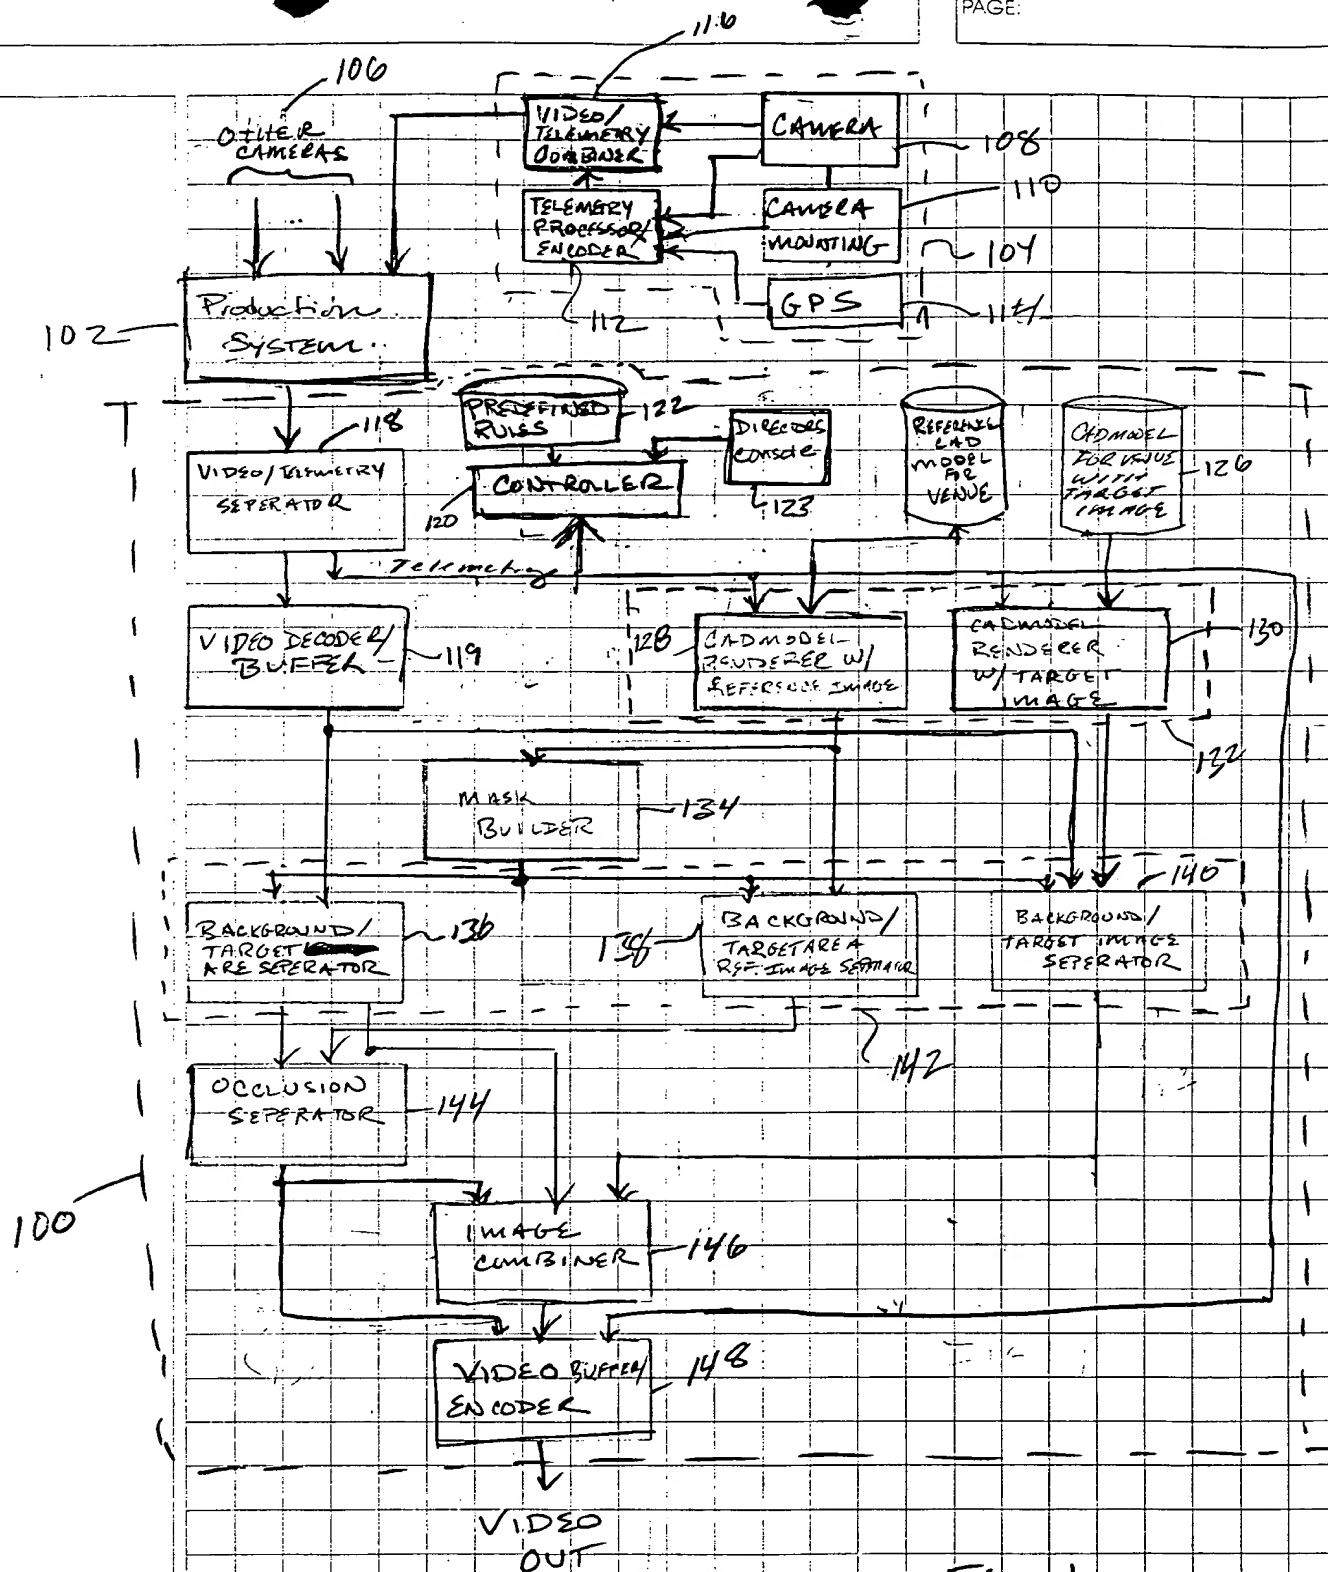 PAGE:
116
106
OTHER
CAMERAS
VIDEO/
TELEMETRY
COMBINER
CAMERA
108
TELEMETRY
PROCESSOR/
ENCODER
CAMERA
MOUNTING
110
104
GPS
114
112
Production
SYSTEM
102
118
PREDEFINED
RULES
122
DIRECTORS
Console
123
REFERENCE
CAD
MODEL
FOR
VENUE
CADMODEL
FOR VENUE
WITH
TARGET
IMAGE
126
VIDEO/TELEMETRY
SEPERATOR
CONTROLLER
120
Telemetry
VIDEO DECODER/
BUFFER
119
128
CADMODEL
RENDERER W/
REFERENCE IMAGE
CADMODEL
RENDERER
W/ TARGET
IMAGE
130
132
MASK
BUILDER
134
140
BACKGROUND/
TARGET
ARE SEPERATOR
136
138
BACKGROUND/
TARGET AREA
REF. IMAGE SEPERATOR
BACKGROUND/
TARGET IMAGE
SEPERATOR
142
OCCLUSION
SEPERATOR
144
100
IMAGE
COMBINER
146
VIDEO BUFFER/
ENCODER
148
VIDEO
OUT